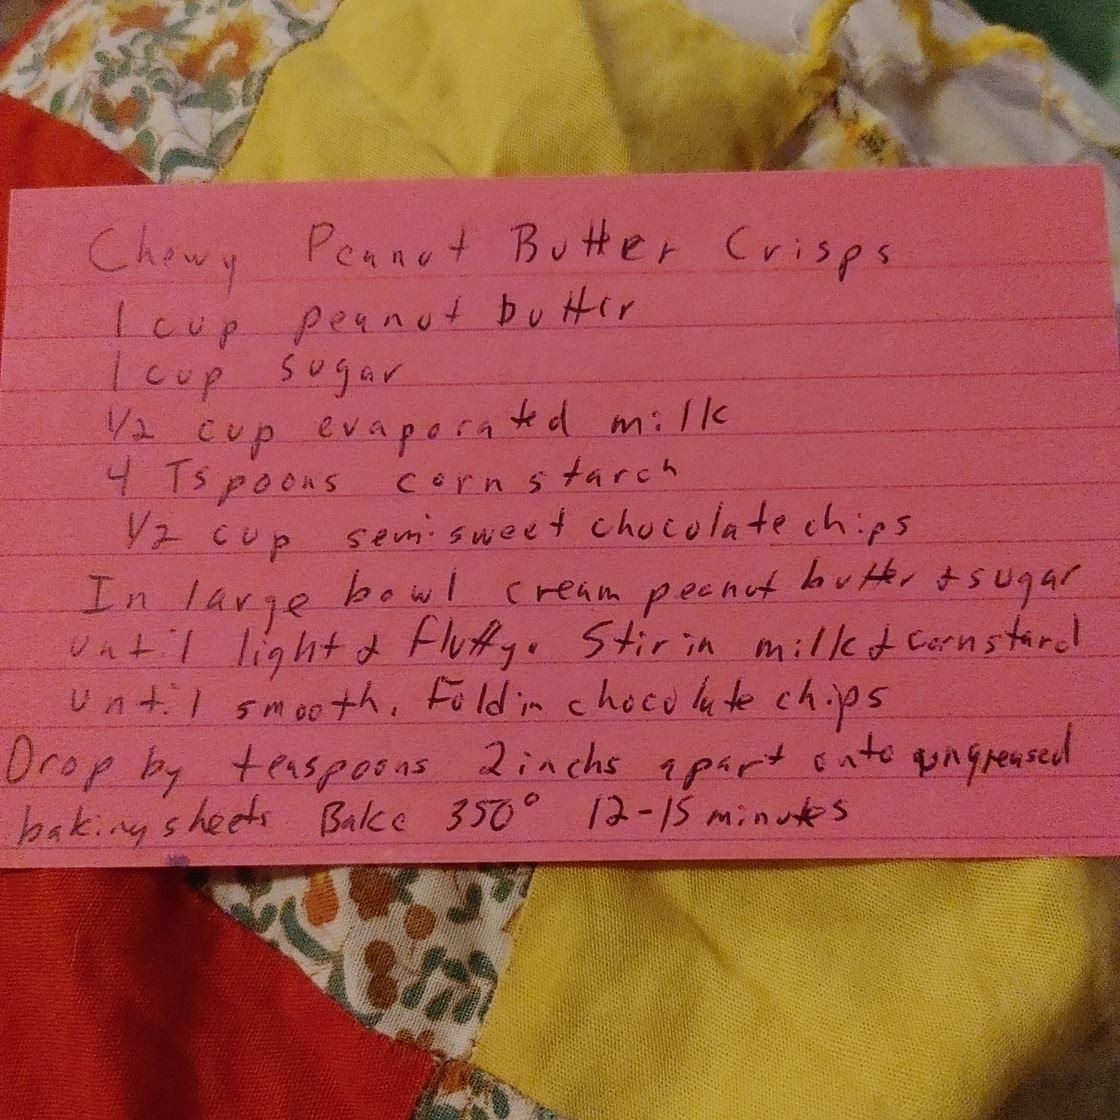 Chewy Peanut Butter Crisps
1 cup peanut butter
1 cup sugar
1/2 cup evaporated milk
4 Tspoons cornstarch
1/2 cup semi-sweet chocolate chips
In large bowl cream peanut butter & sugar
until light & fluffy. Stir in milk & cornstarch
until smooth. Fold in chocolate chips
Drop by teaspoons 2 inchs apart onto ungreased
baking sheets Bake 350° 12-15 minutes